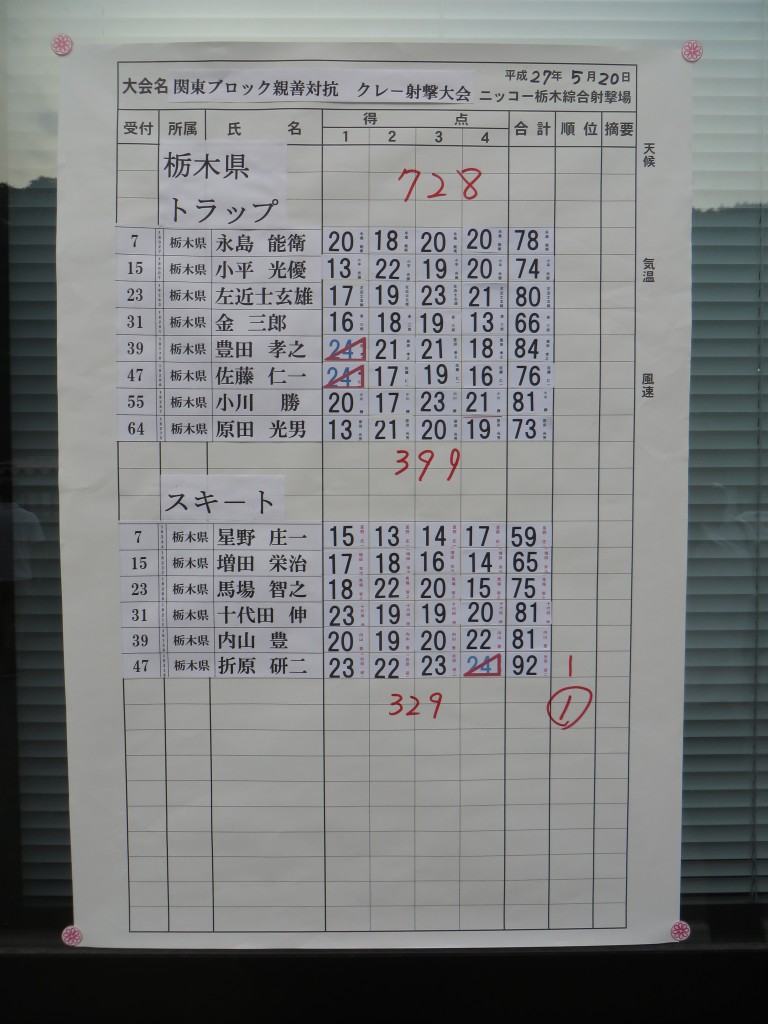 平成27年 5月20日
大会名 関東ブロック親善対抗 クレー射撃大会 ニッコー栃木綜合射撃場
受付 所属 氏 名 得 点 合計 順位 摘要
1 2 3 4
天候
栃木県 728
トラップ
7 栃木県 永島 能衛 20 18 20 20 78
気温
15 栃木県 小平 光優 13 22 19 20 74
23 栃木県 左近士玄雄 17 19 23 21 80
31 栃木県 金 三郎 16 18 19 13 66
39 栃木県 豊田 孝之 24 21 21 18 84
風速
47 栃木県 佐藤 仁一 24 17 19 16 76
55 栃木県 小川 勝 20 17 23 21 81
64 栃木県 原田 光男 13 21 20 19 73
399
スキート
7 栃木県 星野 庄一 15 13 14 17 59
15 栃木県 増田 栄治 17 18 16 14 65
23 栃木県 馬場 智之 18 22 20 15 75
31 栃木県 十代田 伸 23 19 19 20 81
39 栃木県 内山 豊 20 19 20 22 81
47 栃木県 折原 研二 23 22 23 24 92 1
329 1